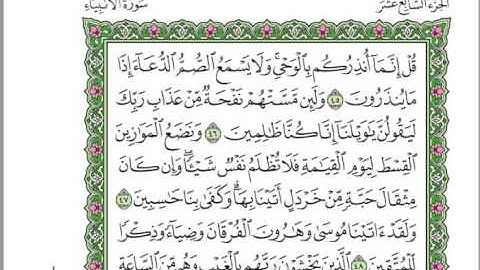 سُورَةُ الأَنبِيَاءِ الجُزءُ السَّابِعَ عَشَرَ
قُلۡ إِنَّمَآ أُنذِرُكُم بِٱلۡوَحۡيِۚ وَلَا يَسۡمَعُ ٱلصُّمُّ ٱلدُّعَآءَ إِذَا
مَا يُنذَرُونَ ٤٥ وَلَئِن مَّسَّتۡهُمۡ نَفۡحَةٞ مِّنۡ عَذَابِ رَبِّكَ
لَيَقُولُنَّ يَٰوَيۡلَنَآ إِنَّا كُنَّا ظَٰلِمِينَ ٤٦ وَنَضَعُ ٱلۡمَوَٰزِينَ
ٱلۡقِسۡطَ لِيَوۡمِ ٱلۡقِيَٰمَةِ فَلَا تُظۡلَمُ نَفۡسٞ شَيۡـٔٗاۖ وَإِن كَانَ
مِثۡقَالَ حَبَّةٖ مِّنۡ خَرۡدَلٍ أَتَيۡنَا بِهَاۗ وَكَفَىٰ بِنَا حَٰسِبِينَ ٤٧
وَلَقَدۡ ءَاتَيۡنَا مُوسَىٰ وَهَٰرُونَ ٱلۡفُرۡقَانَ وَضِيَآءٗ وَذِكۡرٗا
لِّلۡمُتَّقِينَ ٤٨ ٱلَّذِينَ يَخۡشَوۡنَ رَبَّهُم بِٱلۡغَيۡبِ وَهُم مِّنَ ٱلسَّاعَةِ